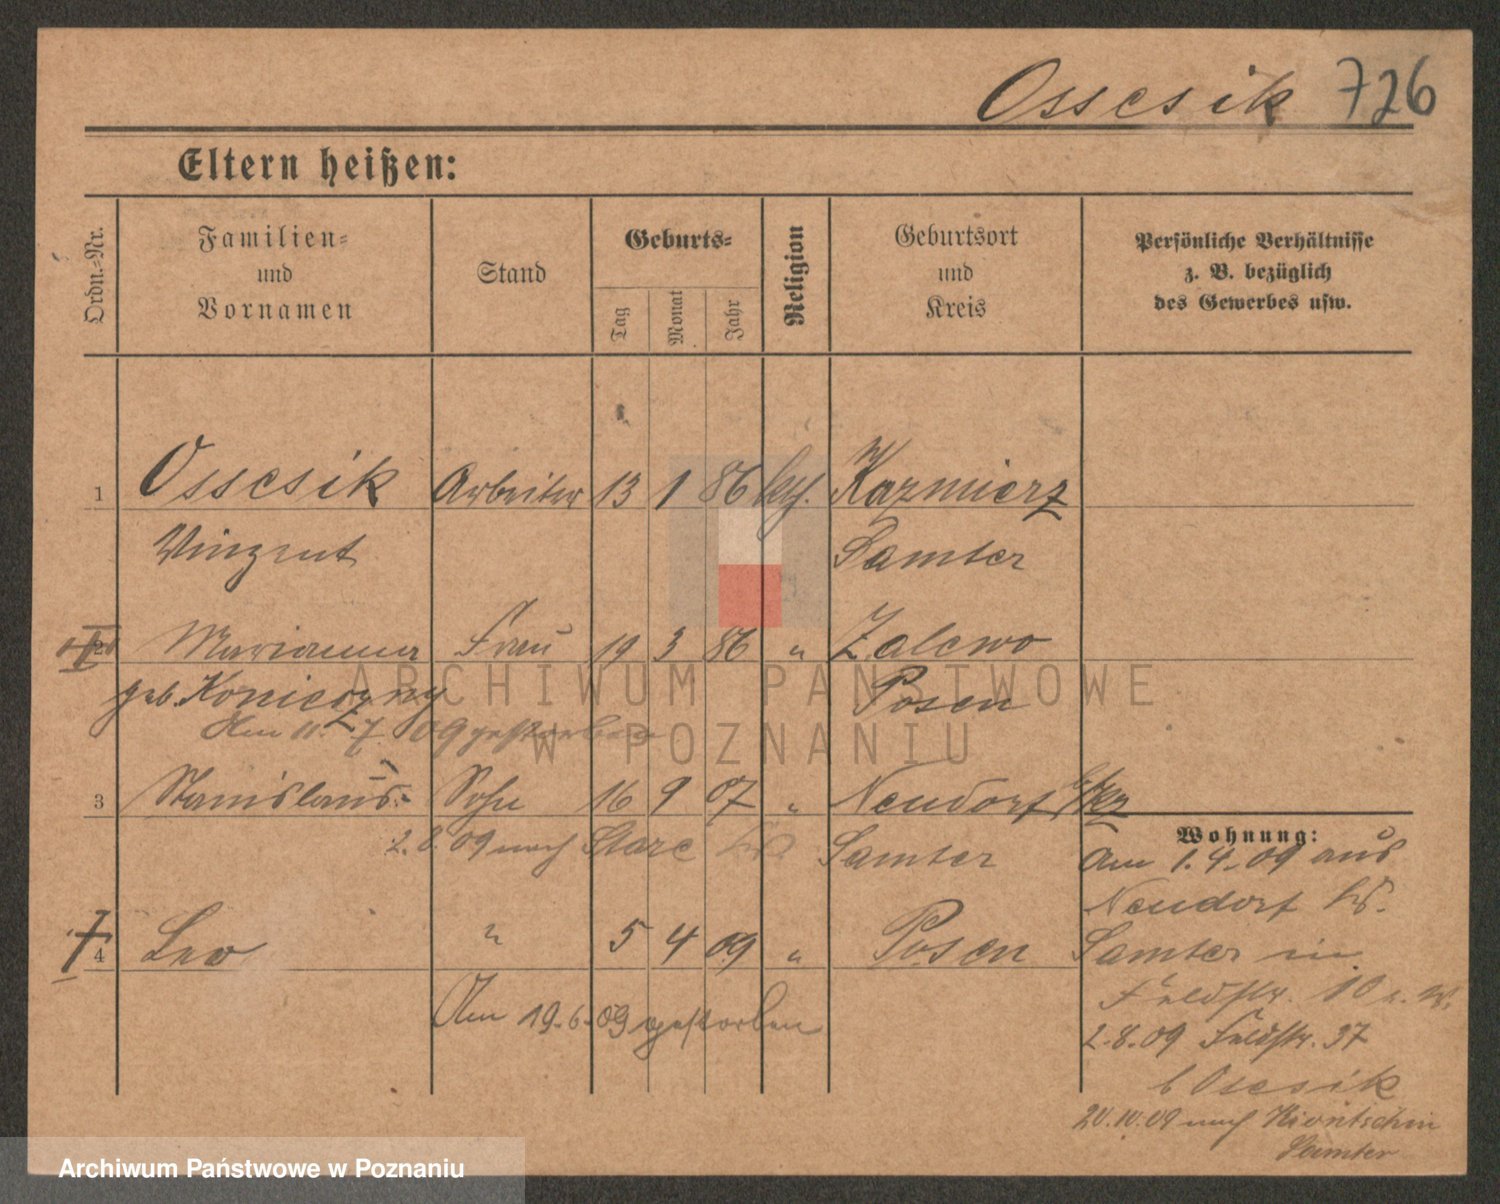 Osscsik 726
Eltern heißen:
Ordn.-Nr.
Familien-
und
Vornamen
Stand
Geburts-
Tag
Monat
Jahr
Religion
Geburtsort
und
Kreis
Persönliche Verhältnisse
z. B. bezüglich
des Gewerbes usw.
1 Osscsik Arbeiter 13 1 86 Kazmierz
Vinzent Samter
2 Marianna Frau 19 3 86 " Zalewo
geb. Konieczny Posen
Am 11. 7. 09 gestorben
3 Stanislaus Sohn 16 9 07 " Neudorf
2.8.09 nach Samter
4 Leo " 5 4 09 " Posen
Am 19.6.09 gestorben
Wohnung:
Am 1.4.09 aus
Neudorf
Samter in
Feldstr. 10
2.8.09 Feldstr. 37
b Osesik
20.10.09 nach
Samter
ARCHIWUM PAŃSTWOWE
W POZNANIU
Archiwum Państwowe w Poznaniu